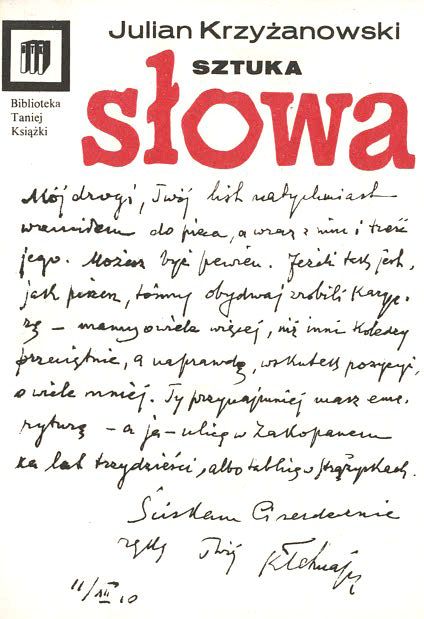 Julian Krzyżanowski
SZTUKA
słowa
Biblioteka
Taniej
Książki
Mój drogi, Twój list natychmiast
wrzuciłem do pieca, a wraz z nim i treść
jego. Możesz być pewien. Jeżeli tak jest,
jak piszesz, tośmy obydwaj zrobili karye-
rę – mamy o wiele więcej, niż inni koledzy
przeciętnie, a naprawdę, wskutek pozycyi,
o wiele mniej. Ty przynajmniej masz eme-
ryturę – a ja – ulicę w Zakopanem
za lat trzydzieści, albo tablicę w Strążyskach.
Ściskam Cię serdecznie
Twój
11/XII 10